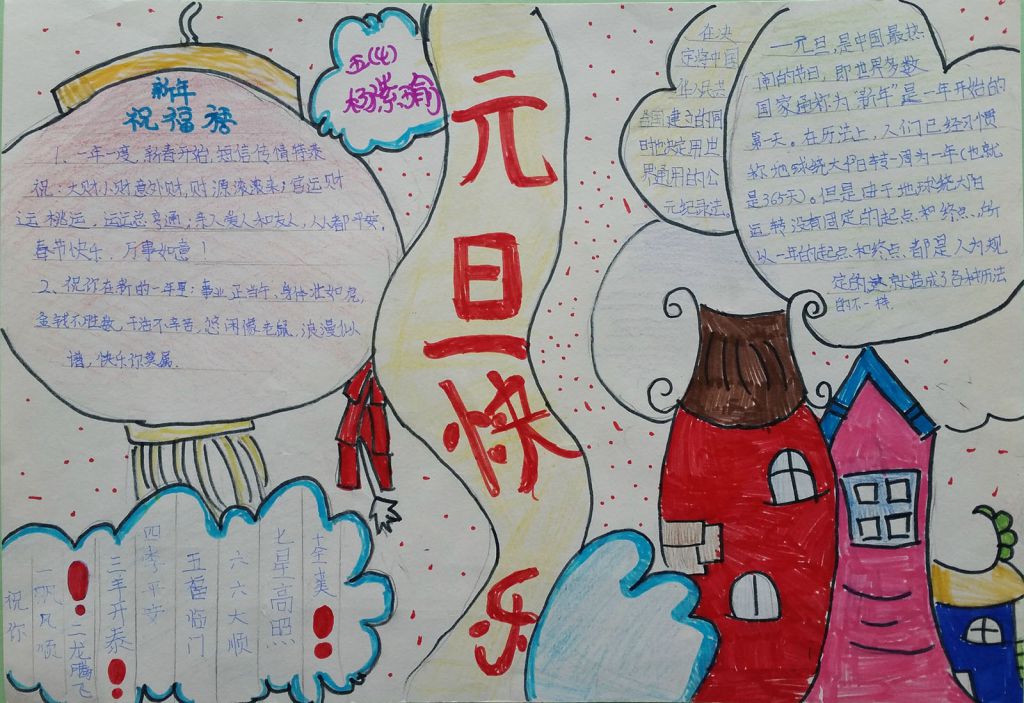 五(4)
杨紫瑜
元旦快乐
新年
祝福榜
1、一年一度,新春开始,短信传情特来
祝:大财小财意外财,财源滚滚来;官运财
运桃运,运运总亨通;亲人爱人和友人,人人都平安,
春节快乐,万事如意!
2、祝你在新的一年里:事业正当午,身体壮如虎,
金钱不胜数,干活不辛苦,悠闲像老鼠,浪漫似
谱,快乐你莫属.
祝你
一帆风顺
!二龙腾飞
三羊开泰!
四季平安
五福临门
六六大顺
七星高照
!
在决
定将中国
建立的同
时也决定用世
界通用的公
元纪录法。
一元旦,是中国最热
闹的节日,即世界多数
国家通称为“新年”是一年开始的
第一天。在历法上,人们已经习惯
称地球绕太阳转一周为一年(也就
是365天)。但是由于地球绕太阳
运转没有固定的起点和终点,所
以一年的起点和终点,都是人为规
定的,就造成了各种历法
的不一样.